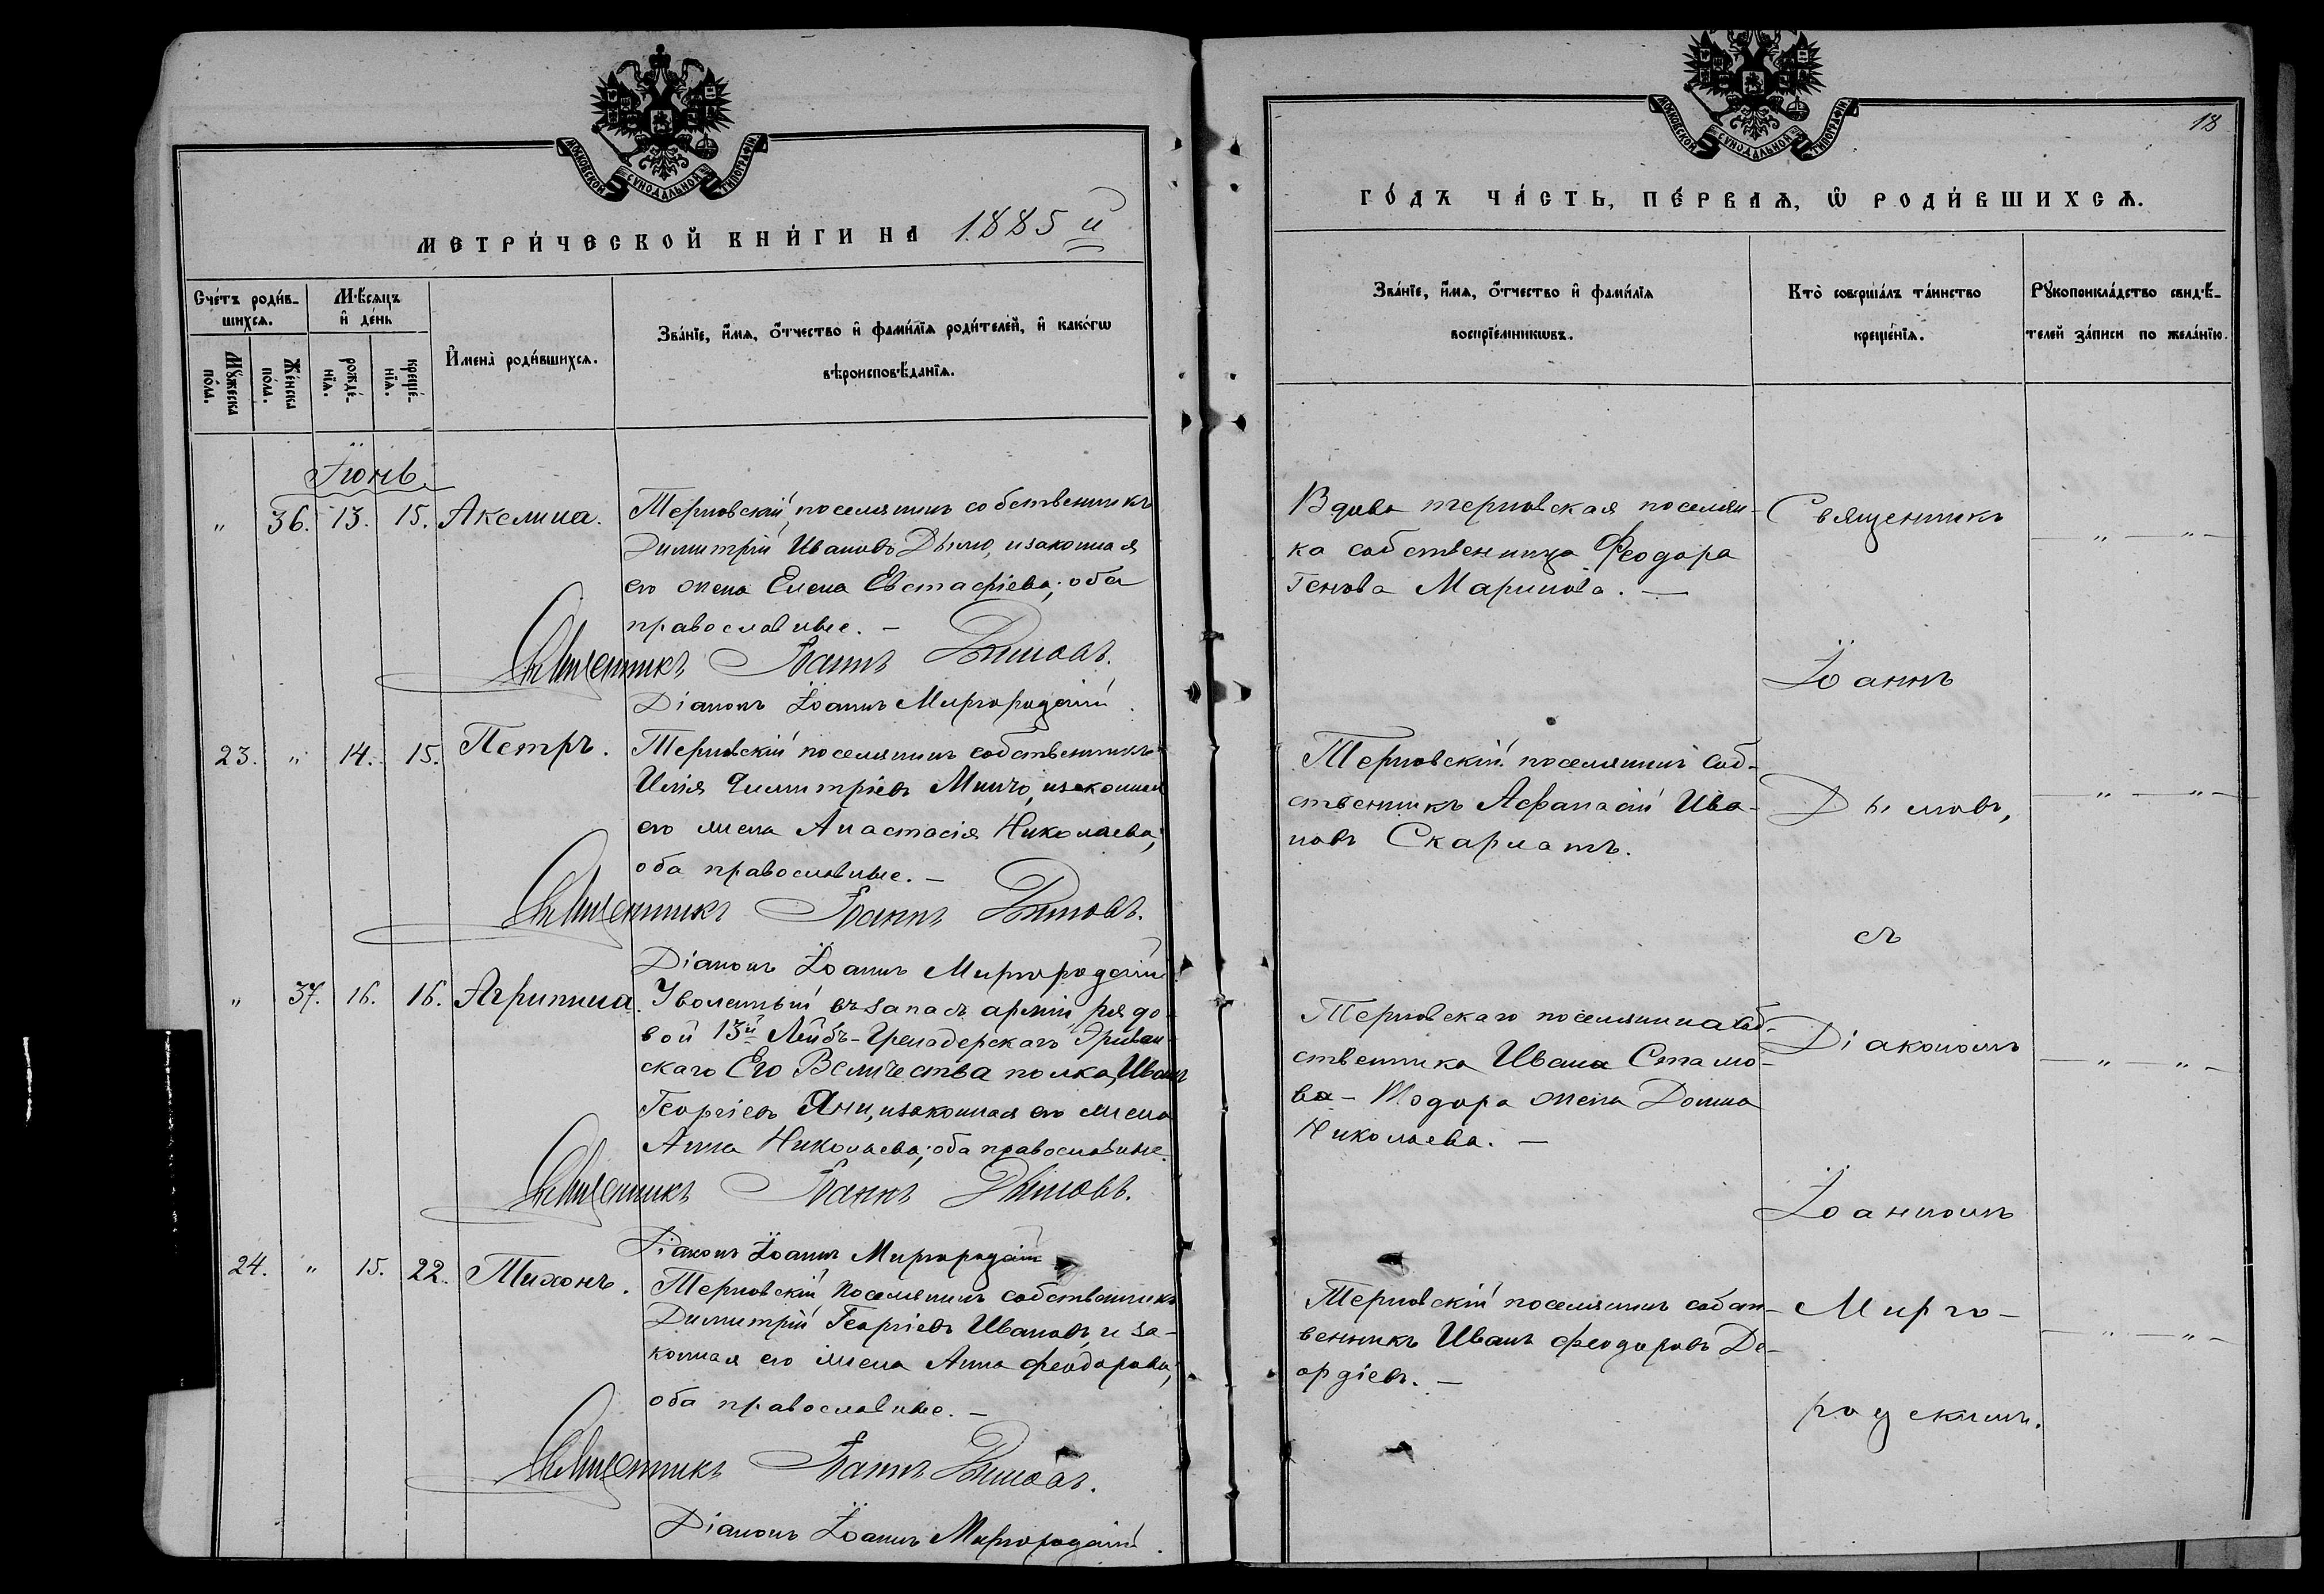 МОСКОВСКОЙ СѴНОДАЛЬНОЙ ТИПОГРАФІИ
МЕТРИ́ЧЕСКОЙ КНИ́ГИ НА 1885 й
Сче́тъ роди́в-
шихсѧ.
Мѣ́сѧцъ
и҆ де́нь
Мꙋ́жеска
по́ла.
Же́нска
по́ла.
рожде́-
нїѧ.
креще́-
нїѧ.
И҆мена̀ роди́вшихсѧ.
Зва́нїе, и҆́мѧ, ѻ҆́тчество и҆ фами́лїѧ роди́телей, и҆ како́гѡ
вѣроисповѣ́данїѧ.
Іюнь.
" 36. 13. 15. Акелина.
Терновскій поселянинъ собственникъ
Димитрій Ивановъ Дымо, и законная
его жена Елена Евстафіева; оба
православные. —
Священникъ Іоаннъ Дымовъ.
Діаконъ Іоаннъ Миргородскій.
23. " 14. 15. Петръ.
Терновскій поселянинъ собственникъ
Илія Димитріевъ Минчо, и законная
его жена Анастасія Николаева;
оба православные. —
Священникъ Іоаннъ Дымовъ.
Діаконъ Іоаннъ Миргородскій
" 37. 16. 16. Агрипина.
Уволенный въ запасъ арміи рядо-
вой 13й Лейбъ-Гренадерскаго Эриван-
скаго Его Величества полка, Иванъ
Георгіевъ Яни, и законная его жена
Анна Николаева; оба православные.
Священникъ Іоаннъ Дымовъ.
Діаконъ Іоаннъ Миргородскій
24. " 15. 22. Тихонъ.
Терновскій поселянинъ собственникъ
Димитрій Георгіевъ Ивановъ, и за-
конная его жена Анна Феодорова;
оба православные. —
Священникъ Іоаннъ Дымовъ.
Діаконъ Іоаннъ Миргородскій.
МОСКОВСКОЙ СѴНОДАЛЬНОЙ ТИПОГРАФІИ
18
ГО́ДЪ ЧА́СТЬ, ПЕ́РВАѦ, Ѡ҆ РОДИ́ВШИХСѦ.
Зва́нїе, и҆́мѧ, ѻ҆́тчество и҆ фами́лїѧ
воспрїе́мникѡвъ.
Кто̀ соверша́лъ та́инство
креще́нїѧ.
Рꙋкоприкла́дство свидѣ́-
телей за́писи по жела́нїю.
Вдова терновская поселян-
ка собственница Феодора
Генова Маринова. —
Терновскій поселянинъ соб-
ственникъ Афанасій Ива-
новъ Скарлатъ.
Терновскаго поселянина соб-
ственника Ивана Стамо-
ва - Тодора жена Домна
Николаева. —
Терновскій поселянинъ собст-
венникъ Иванъ Феодоровъ Де-
ордіевъ. —
Священникъ
Іоаннъ
Дымовъ,
съ
Діакономъ
Іоанномъ
Мирго-
родскимъ.
— " — " —
— " — " —
— " — " —
— " — " —